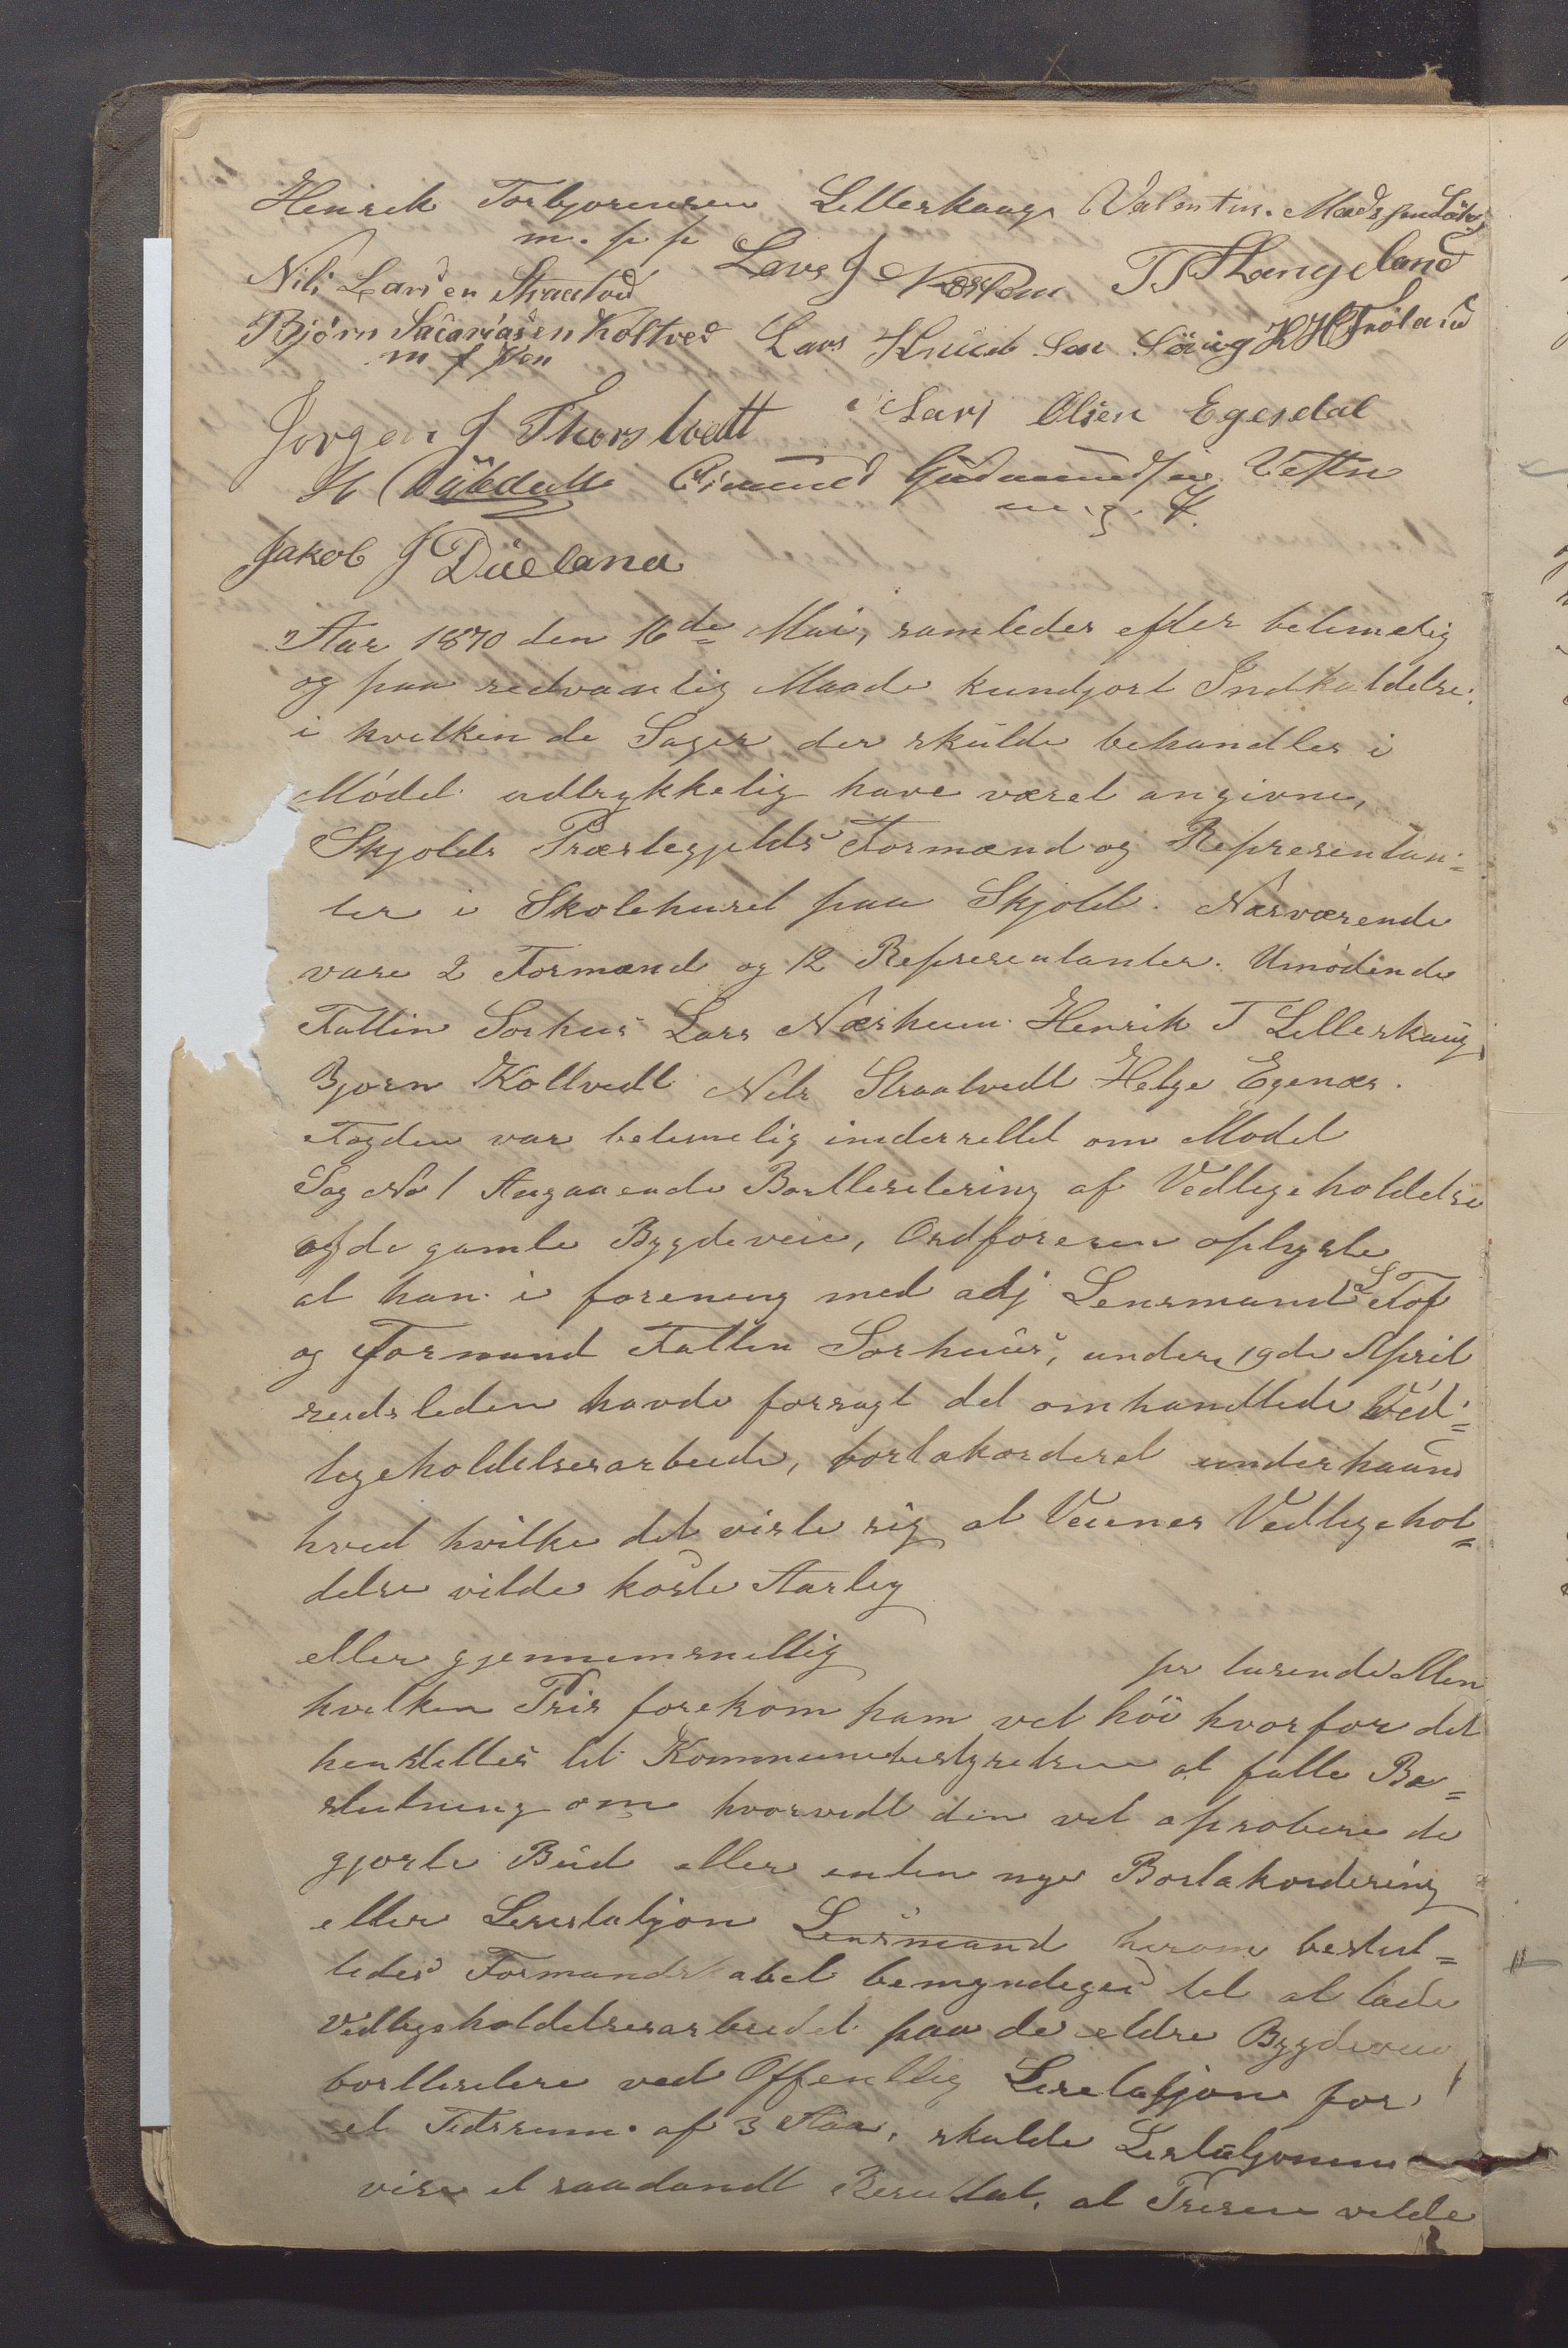 Henrik Torbjorensen Lellerskaug Valentin. Madssen
m. p p
Nils Larsen Straatvd Lars J Nærhem T T Langeland
Björn Sacariasen Koltved Lars Knudsen Sövig K H Fröland
m f Pen
Jorgen J Thorstvedt Lars Olsen Egesdal
H Dybdahl Omund Gudmundsen Vestre
m. g. P.
Jakob J Düeland
Aar 1870 den 16de Mai, samledes efter betimelig
og paa sedvanlig Maade kundjort Indkaldelse;
i hvilken de Sager der skulde behandles i
Mödet udtrykkelig have væred angivne,
Skjolds Præstegjelds Formænd og Represendan-
ter i Skolehuset paa Skjold. Nærværende
vare 2 Formænd og 12 Represendanter. Umödende
Tallin Sorhus Lars Nærheim Henrik T Lellerskaug,
Bjorn Koltvedt Nels Straatvedt Helge Egenæs.
Fogden var betimelig inderrettet om Modet
Sag No 1 Angaaende Bortleseltering af Vedligeholdelse
af de gamle Bygdeveie, Ordforeren oplyste
at han i forening med adj Lensmand S Tof
og Formand Tallin Sorhuus, under 19de April
sidsleden havde forsøgt det omhandlede Ved-
ligeholdelsesarbeide, bortakorderet underhaand
hved hvilke det viste sig at Veienes Vedligehol-
delse vilde koste Aarlig
eller gjennemsnittig pr tusende Alen
hvilken Pris forekom ham vel höi hvorfor det
henstilles til Kommunebestyrelsen at fatte Be-
slutning om hvorvidt den vil aprobere de
gjorte Bud eller enten nye Bortakordering
eller Liseitatjon Lensmand herom beslut-
tedes Formandskabet bemyndiges til at lade
Vedligeholdelsesarbeidet paa de eldre Bygdeveie
bortlisitere ved Offentlig Liseitatjon for
et Tidsrum af 3 Aar, skulde Liseitatjonen
vise et saadandt Resultat, at Prisen vilde